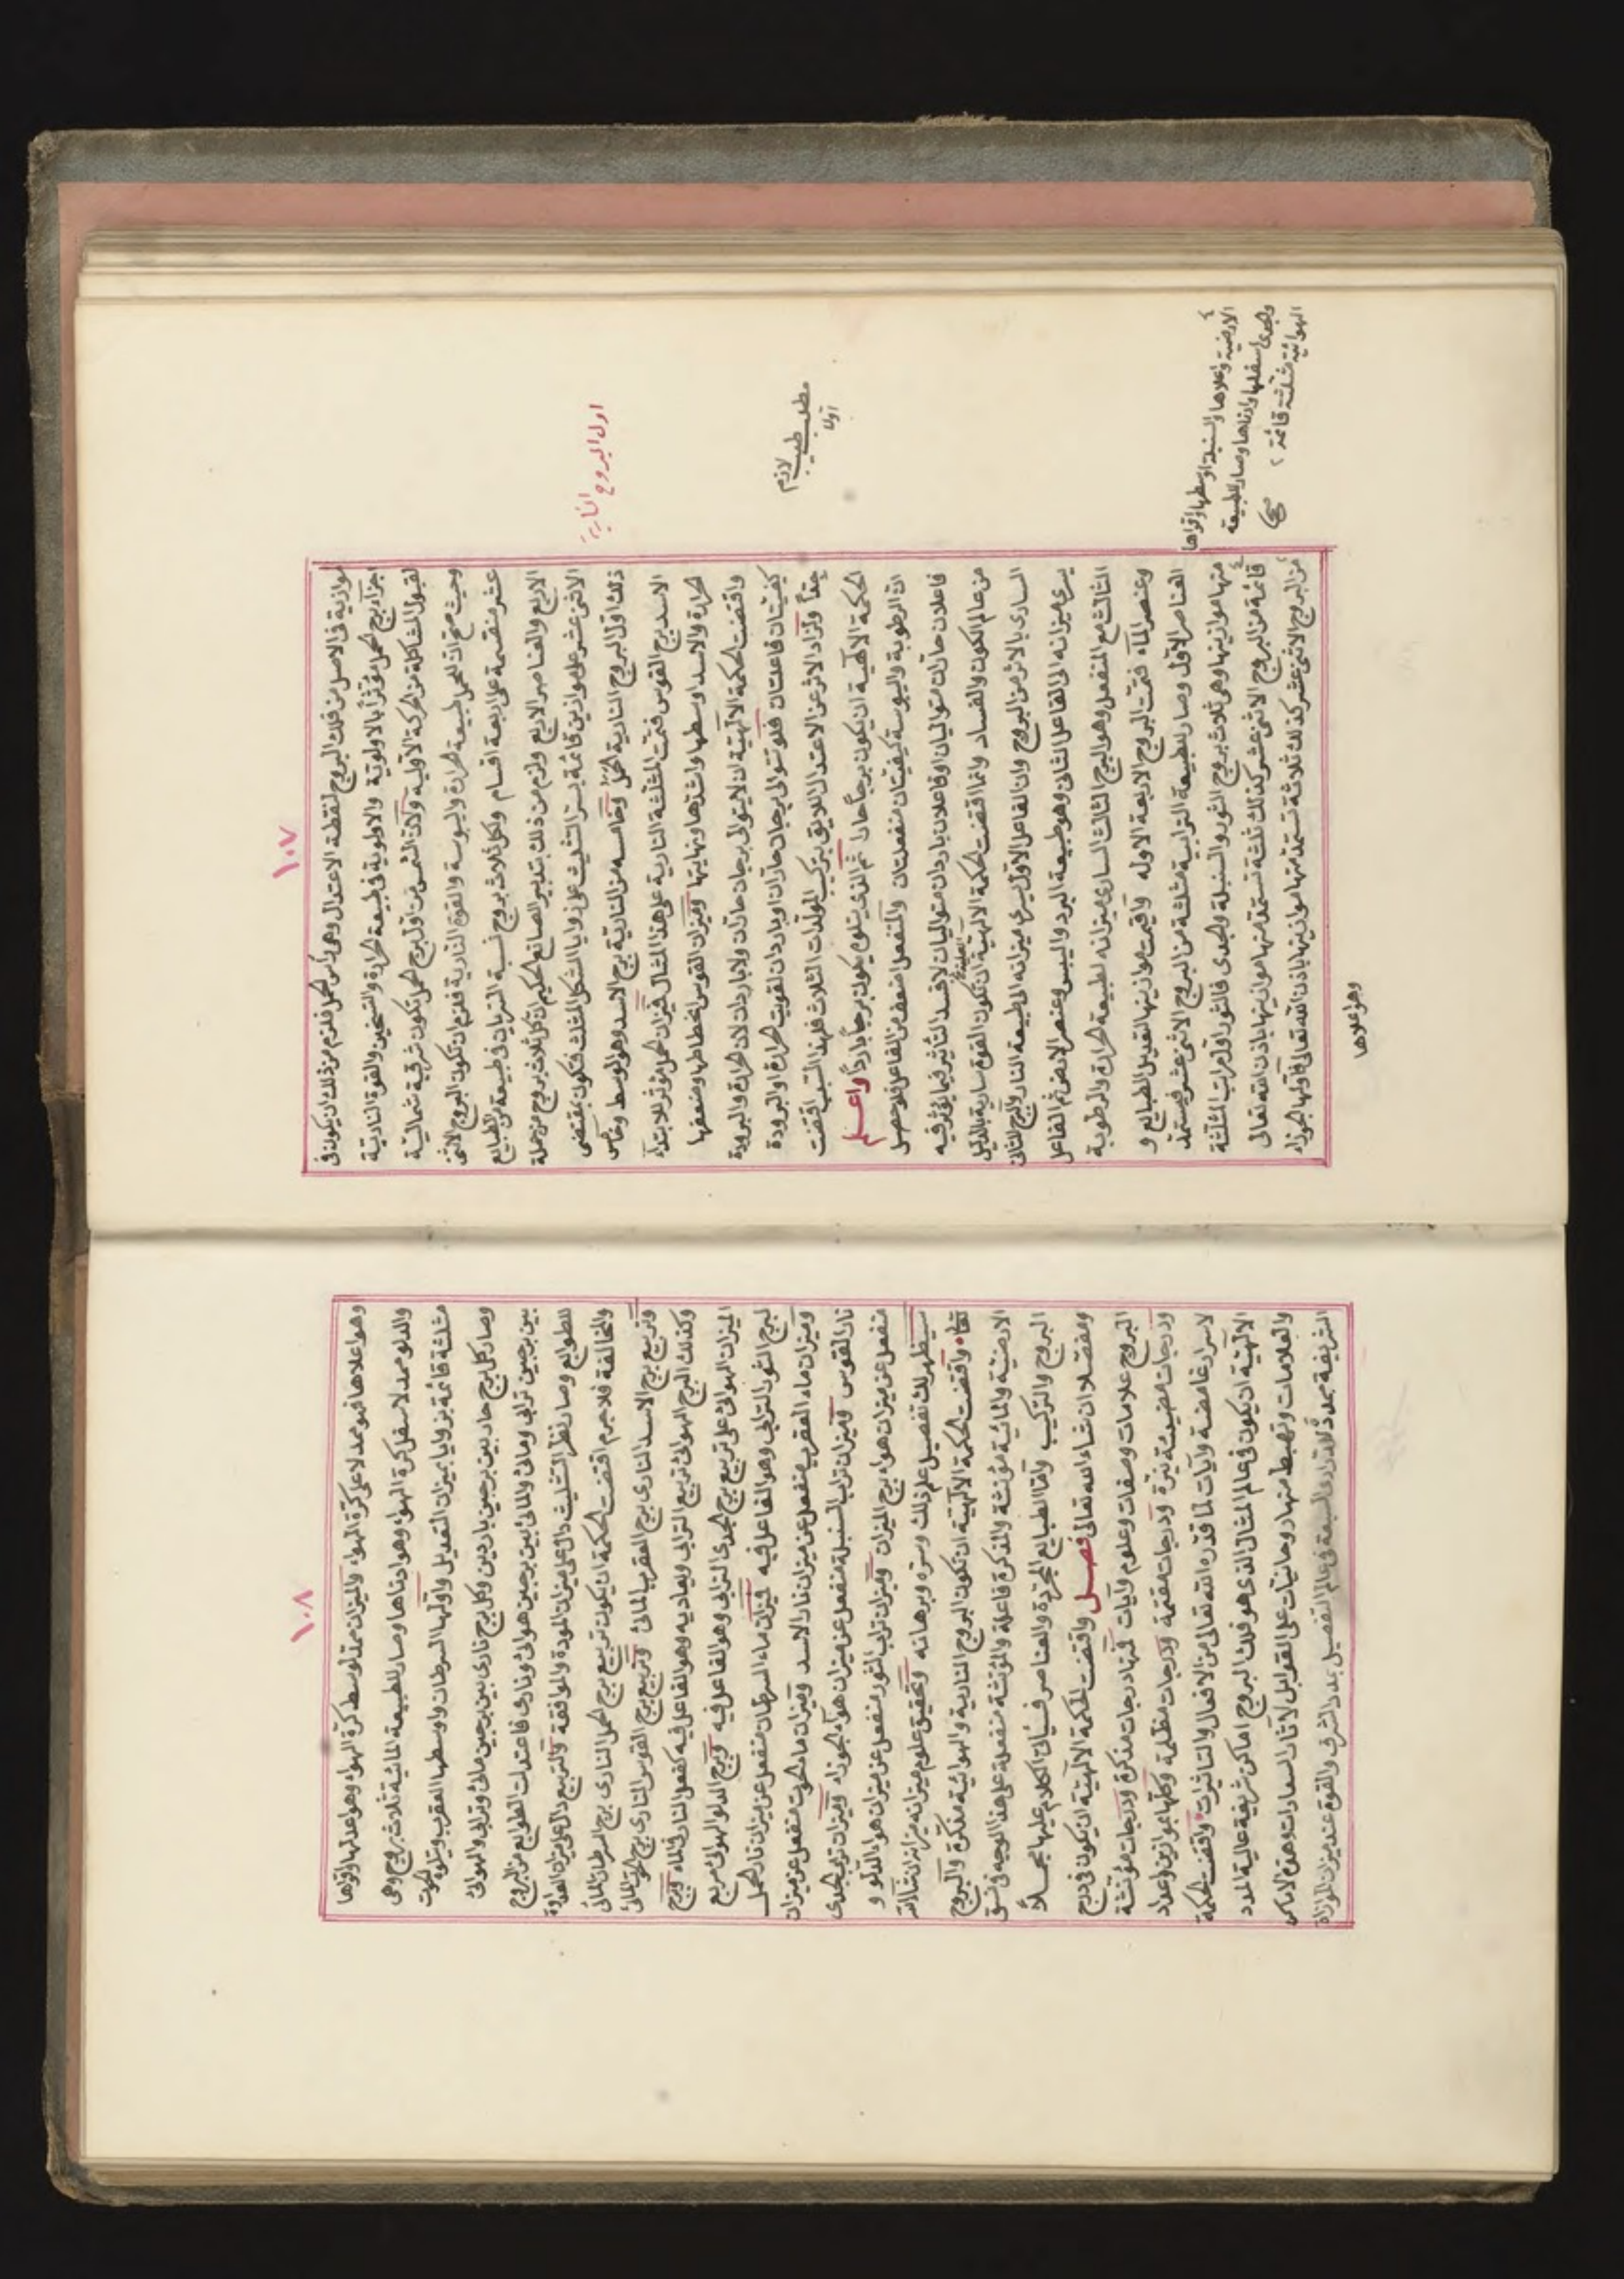 ١٠٧
موازية في الاصل من فلك البروج لنقطة الاعتدال وهي رأس الحمل فلزم من ذلك ان يكون في
اجزاء برج الحمل مؤثرا بالاولوية والاولوية في طبيعة الحرارة والتسخين والقوة النارية
لقبول المشاكلة من الحركة الاولية ولان الشمس من اول برج الحمل تكون شرقية شمالية
وحيث صح ان للحمل طبيعة الحرارة واليبوسة والقوة النارية فلزم ان تكون البروج الاثنى
عشر منقسمة على اربعة اقسام ولكل ثلاث بروج نسبة السريان في طبيعة من الطبايع
الاربع والعناصر الاربع ولزم من ذلك بتدبير الصانع الحكيم ان كل ثلاث بروج من جملة
الاثنى عشر على موازين قائمة بستر التثليث على زوايا الشكل المثلث فتكون بمقتضى
ذلك اول البروج النارية الحمل وخامسه من النارية برج الاسد وهو الوسط وخامس
الاسد برج القوس فتمت المثلثة النارية على هذا المثال فميزان الحمل مؤثر للابتداء
الحرارة والاسد اوسطها واشدها ونهايتها وميزان القوس انحطاطها وضعفها
واقتضت الحكمة الالهية ان لا يتوالى برجان حاران ولا باردان لان الحرارة والبرودة
كيفيتان فاعلتان فلو توالى برجان حاران او باردان لقويت الحرارة او البرودة
جدا ولزاد الاثر عن الاعتدال اللايق بتركيب المولدات الثلاث فلهذا السبب اقتضت
الحكمة الالهية ان يكون برجا حارا ثم الذي يتلوه يكون برجا باردا واعلم
ان الرطوبة واليبوسة كيفيتان منفعلتان والمنفعل اضعف من الفاعل فلا حصل
فاعلان حاران متواليان او فاعلان باردان متواليان لافسد التأثير فيما يؤثر فيه
من عالم الكون والفساد وانما اقتضت الحكمة الالهية ان تكون القوة سارية بالدليل
السارى بالاثر من البروج وان الفاعل الاول يسرى ميزانه الى طبيعة النار والبرج الثاني
يسرى ميزانه الى الفاعل الثاني وهو طبيعة البرد واليبس وعنصر الارض ثم الفاعل
الثالث مع المنفعل وهو البرج الثالث السارى ميزانه لطبيعة الحرارة والرطوبة
وعنصر الماء فتمت البروج الاربعة الاوله واقيمت موازينها لتعديل الطبايع و
العناصر الاول وصار للطبيعة الترابية مثلثة من البروج الاثنى عشر فيستمد
منها موازينها وهي ثلاث بروج الثور والسنبلة والجدى فالثور اول مراتب المثلثة
قائمة من البروج الاثنى عشر كذلك ثلثة تستمد منها موازينها باذن الله تعالى
من البروج الاثنى عشر كذلك ثلاثة تستمد منها موازينها باذن الله تعالى فاولها الجوزاء
وهو اعلاها
اول البروج النارية
مطلب طيب
لازم
الارضية واعلاها والسنبلة اوسطها واقواها
والجدى اسفلها وادناها وصار للطبيعة
الهوائية مثلثة قائمة
صح
١٠٨
وهو اعلاها فهو ممد لاعلى كرة الهواء والميزان ممتد لوسط كرة الهواء وهو اعدلها واقواها
والدلو ممد لاسفل كرة الهواء وهو ادناها وصار للطبيعة المائية ثلاث بروج وهي
مثلثة قائمة بزوايا بميزان التعديل واولها السرطان واوسطها العقرب ويتلوه الحوت
وصار كل برج حار بين برجين باردين وكل برج نارى بين برجين مائى وترابي والهوائى
بين برجين ترابي ومائى والمائى بين برجين هوائى ونارى فاعتدلت الطوالع من البروج
للطوالع وصار نظر التثليث دال على ميزان المودة والموافقة والتربيع دال على ميزان العداوة
والمخالفة فلا جرم اقتضت الحكمة ان يكون تربيع برج الحمل النارى برج السرطان المائى
وتربيع برج الاسد النارى برج العقرب المائى وتربيع برج القوس النارى برج الحوت المائى
وكذلك البرج الهوائى تربيع الترابي ويعاديه وهو الفاعل فيه كفعل النار في الماء وبرج
الميزان الهوائى على تربيع برج الجدى الترابي وهو الفاعل فيه وبرج الدلو الهوائى مربع
لبرج الثور الترابي وهو الفاعل فيه فميزان ماء السرطان منفعل عن ميزان نار الحمل
وميزان ماء العقرب منفعل عن ميزان نار الاسد وميزان ماء الحوت منفعل عن ميزان
نار القوس وميزان تراب السنبلة منفعل عن ميزان هواء الجوزاء وميزان تراب الجدى
منفعل عن ميزان هواء برج الميزان وميزان تراب الثور منفعل عن ميزان هواء الدلو و
سيظهر لك تفصيل علم ذلك وسره وبرهانه وتحقيق علوم ميزانه ان شاء الله
تعالى واقتضت الحكمة الالهية ان تكون البروج النارية والهوائية مذكرة والبروج
الارضية والمائية مؤنثة والمذكرة فاعلة والمؤنثة منفعلة على هذا الوجه في نسق
البروج والتركيب واما الطبايع المجردة والعناصر فسياتي الكلام عليها مجملا
ومفصلا ان شاء الله تعالى فصل واقتضت الحكمة الالهية ان يكون في درج
البروج علامات وصفات وعلوم وايات فمنها درجات مذكرة ودرجات مؤنثة
ودرجات مضيئة نيرة ودرجات مقتمة ودرجات مظلمة وكلها بموازين واعداد
لاسرار غامضة وآيات لما قدره الله تعالى من الافعال والتاثيرات واقتضت الحكمة
الالهية ان يكون في عالم المثال الذى هو فلك البروج اماكن شريفة عالية المدد
والعلامات وتهبط منها روحانيات على القوابل لآثار السعادات وهذه الاماكن
الشريفة ممدة للدرارى السبعة في عالم التفصيل بمدد الشرف والقوة عند ميزان الموازاة